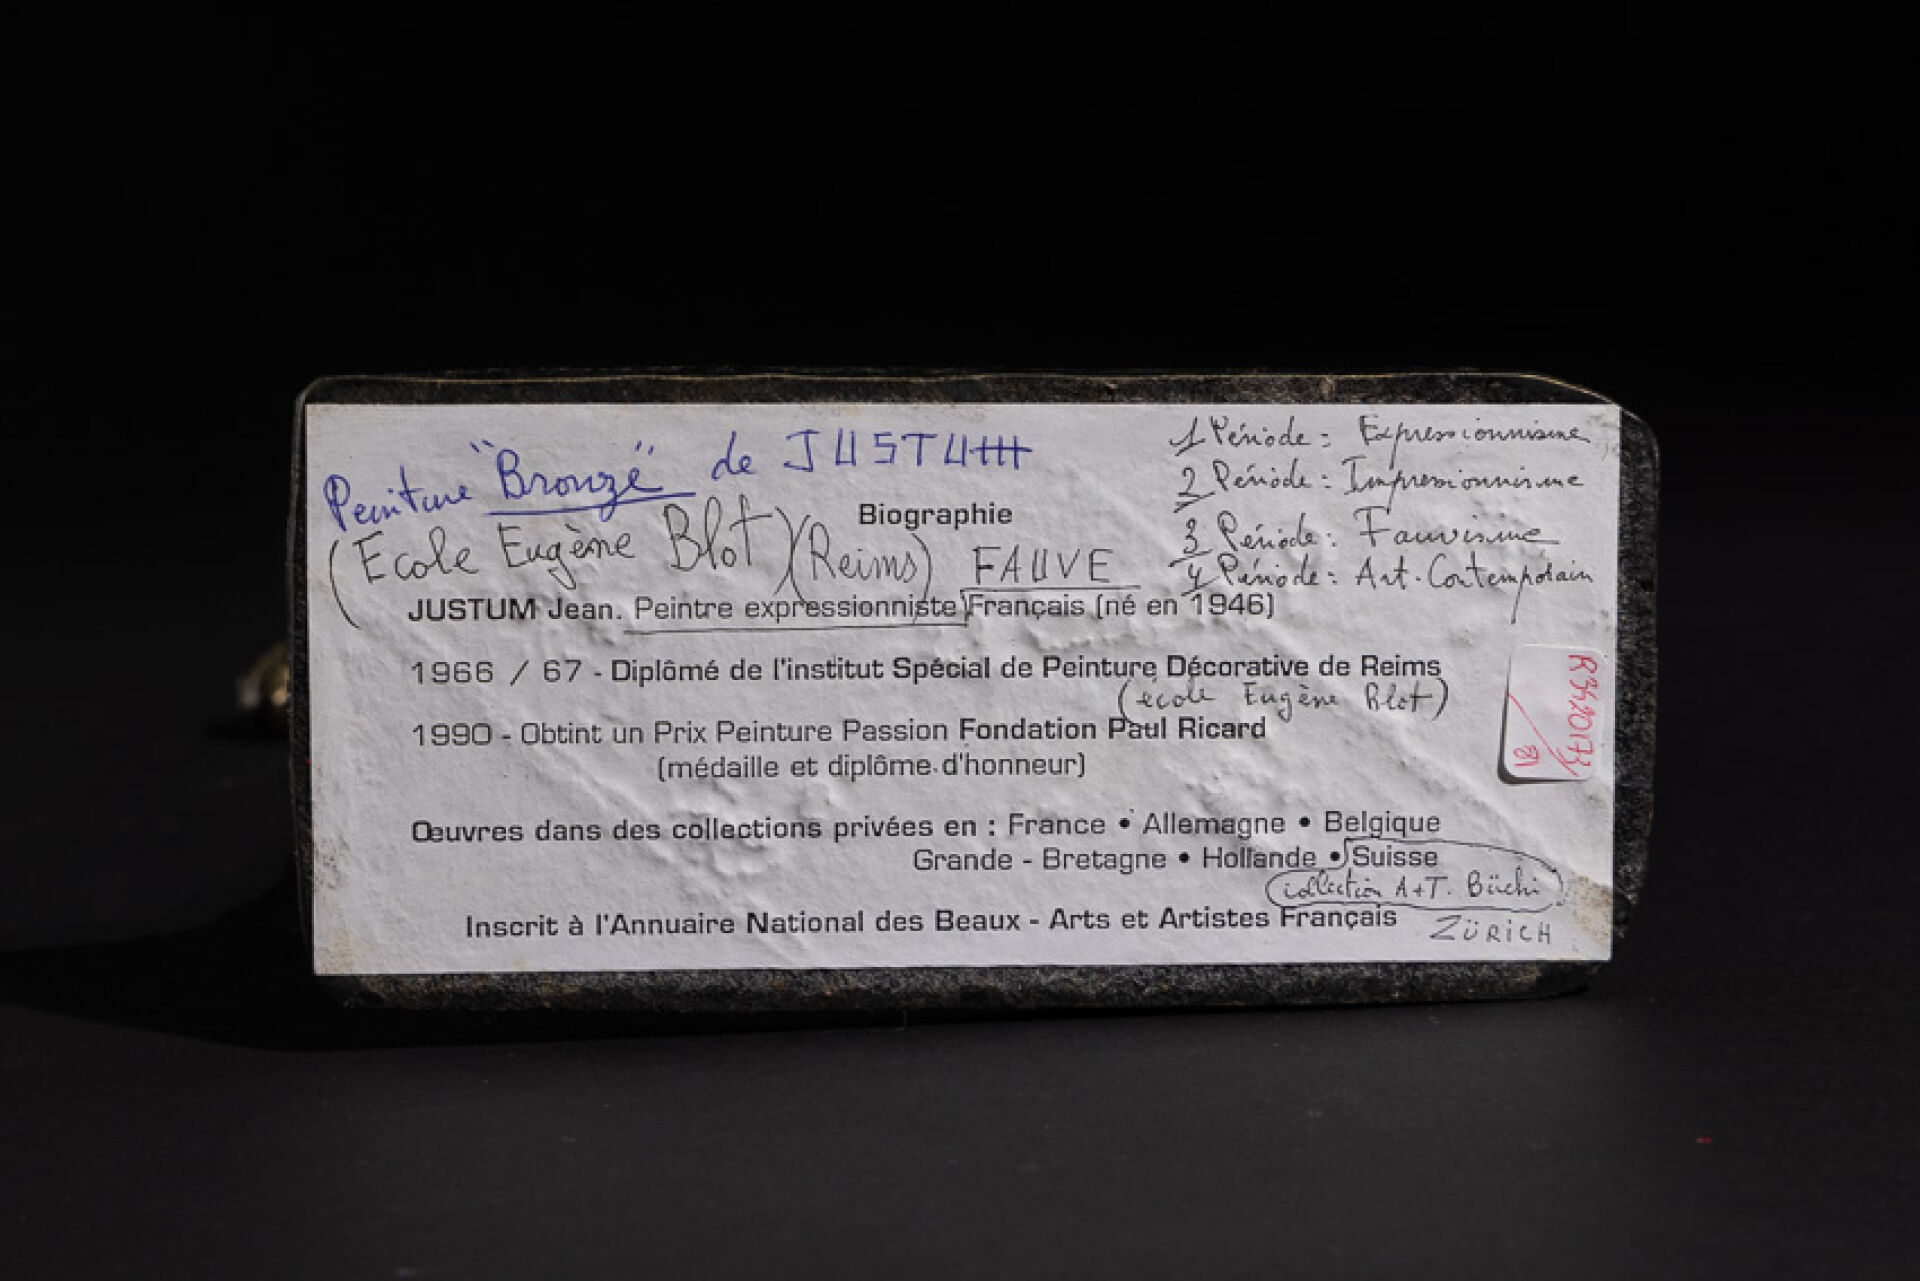 Peinture "Bronze" de JUSTUM
(Ecole Eugène Blot) (Reims)
Biographie
FAUVE
1 Période : Expressionnisme
2 Période : Impressionnisme
3 Période : Fauvisme
4 Période : Art-Contemporain
JUSTUM Jean. Peintre expressionniste Français (né en 1946)
1966 / 67 - Diplômé de l'institut Spécial de Peinture Décorative de Reims
(école Eugène Blot)
1990 - Obtint un Prix Peinture Passion Fondation Paul Ricard
(médaille et diplôme d'honneur)
Œuvres dans des collections privées en : France • Allemagne • Belgique
Grande - Bretagne • Hollande • Suisse
(collection A+T. Büchi)
ZÜRICH
Inscrit à l'Annuaire National des Beaux - Arts et Artistes Français